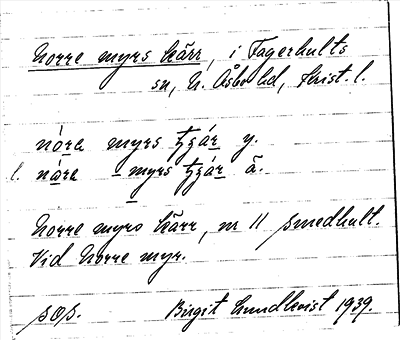 Norre myrs kärr, i Fagerhults
sn, N. Åsbo hd, Krist. l.
nore myrs tʒár y.
l. nåre - myrs tʒár ä.
Norre myrs kärr, nr 11 Smedhult.
Vid Norre myr.
sos. Birgit Lundkvist 1939.